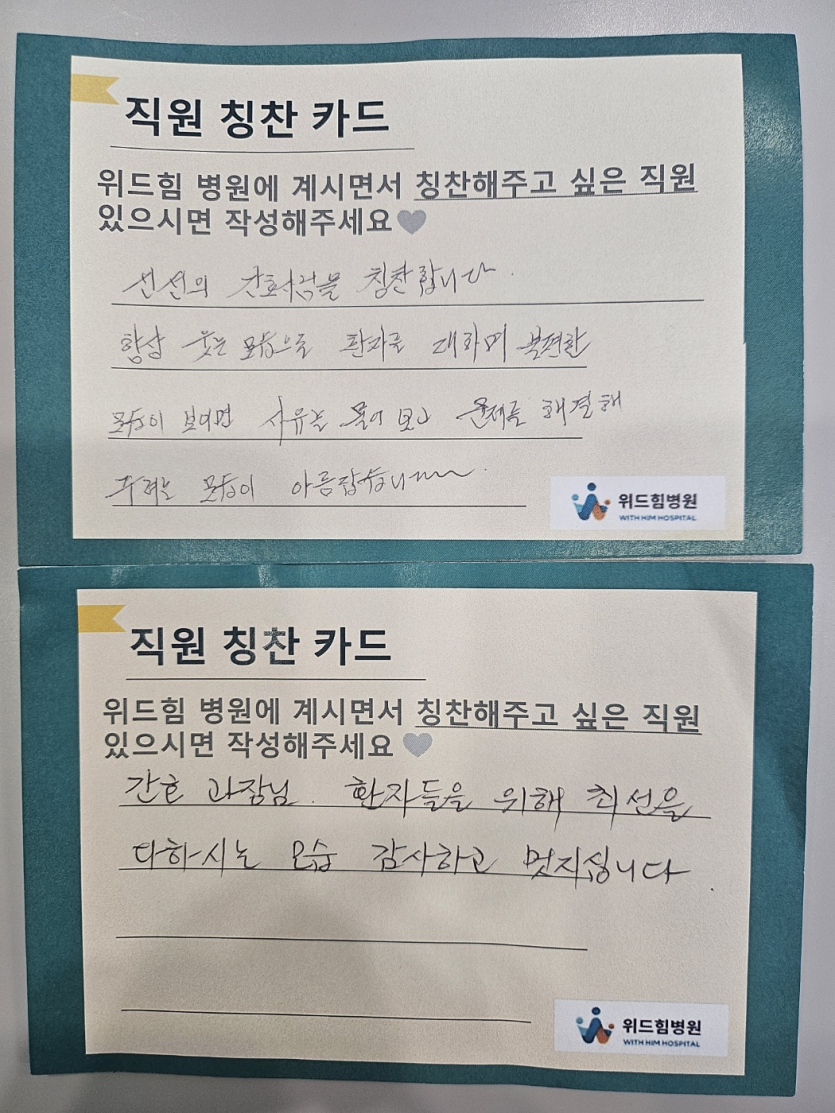 직원 칭찬 카드
위드힘 병원에 계시면서 칭찬해주고 싶은 직원
있으시면 작성해주세요
간호사님을 칭찬합니다.
항상 웃는 모습으로 환자를 대하며 불편한
모습이 보이면 사유를 물어 보고 문제를 해결해
주려는 모습이 아름답습니다.
위드힘병원
WITH HIM HOSPITAL
직원 칭찬 카드
위드힘 병원에 계시면서 칭찬해주고 싶은 직원
있으시면 작성해주세요
간호 과장님. 환자들을 위해 최선을
다하시는 모습 감사하고 멋지십니다.
위드힘병원
WITH HIM HOSPITAL